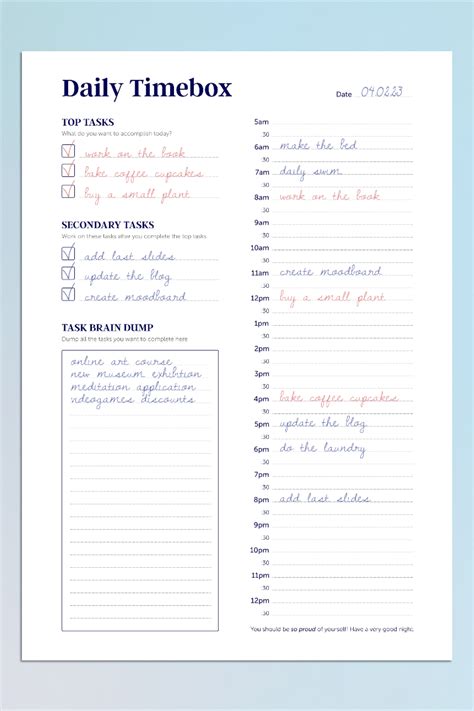 Daily Timebox
Date 04.02.23
TOP TASKS
What do you want to accomplish today?
work on the book
bake coffee cupcakes
buy a small plant
SECONDARY TASKS
Work on these tasks after you complete the top tasks
add last slides
update the blog
create moodboard
TASK BRAIN DUMP
Dump all the tasks you want to complete here
online art course
new museum exhibition
meditation application
videogames discounts
5am
:30
6am make the bed
:30
7am daily swim
:30
8am work on the book
:30
9am
:30
10am
:30
11am create moodboard
:30
12pm buy a small plant
:30
1pm
:30
2pm
:30
3pm
:30
4pm bake coffee cupcakes
:30
5pm update the blog
:30
6pm do the laundry
:30
7pm
:30
8pm add last slides
:30
9pm
:30
10pm
:30
11pm
:30
12pm
:30
You should be so proud of yourself! Have a very good night.